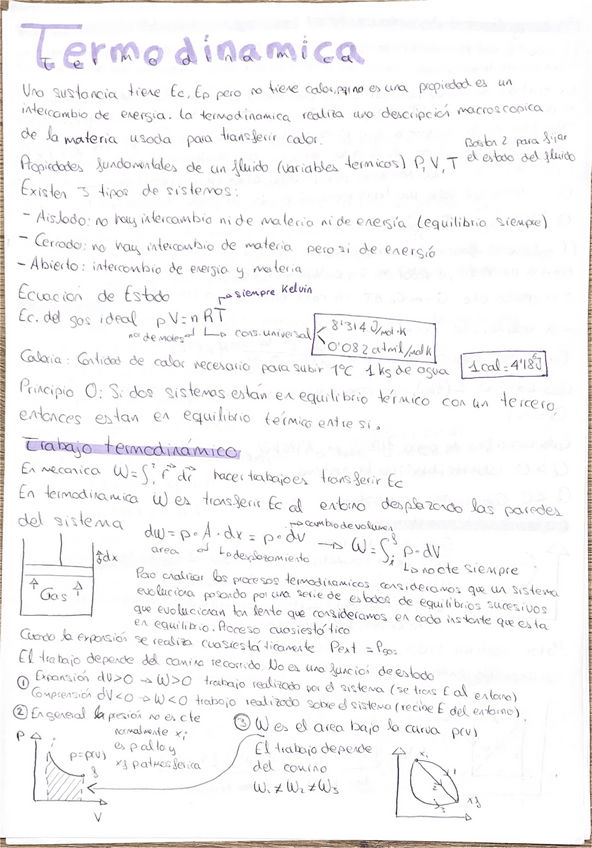 Termodinamica
Termodinamica
Una sustancia tiene Ec, Ep pero no tiene calor, no es una propiedad es un
intercambio de energia. La termodinamica realiza una descripción macroscopica
de la materia usada para transferir calor.
Bastan 2 para fijar
el estado del fluido
Propiedades fundamentales de un fluido (variables termicas) P, V, T
Existen 3 tipos de sistemas:
- Aislado: no hay intercambio ni de materia ni de energía (equilibrio siempre)
- Cerrado: no hay intercambio de materia pero si de energió
- Abierto: intercambio de energia y materia
Ecuacion de Estado
siempre Kelvin
Ec. del gas ideal pV = nRT
nº de moles cons. universal
8'314 J/mol·k
0'082 atml/molk
Caloria: Cantidad de calor necesario para subir 1ºC 1 kg de agua
1 cal = 4'18 J
Principio 0: Si dos sistemas están en equilibrio térmico con un tercero,
entonces estan en equilibrio termico entre si.
Trabajo termodinámico
En mecanica W = ∫ dr hacer trabajo es transferir Ec
En termodinamica W es transferir Ec al entorno desplazando las paredes
del sistema
dw = p · A · dx = p · dV → W = ∫ᵢᶠ p · dV
cambio de volumen
area desplazamiento
no cte siempre
dx
Gas
Para analizar los procesos termodinamicos consideramos que un sistema
evoluciona pasando por una serie de estados de equilibrios sucesivos
que evolucionan tan lento que consideramos en cada instante que esta
en equilibrio. Proceso cuasiestático
Cuando la expansión se realiza cuasiestáticamente Pext = Pgas
El trabajo depende del camino recorrido. No es una funció de estado
① Expansión dV>0 → W>0 trabajo realizado por el sistema (se trans E al entorno)
Compresión dV<0 → W<0 trabajo realizado sobre el sistema (recibe E del entorno)
② En general la presión no es cte
normalmente xi
es p alta y
xf p atmosferica
P
p=p(v)
f
V
③ W es el area bajo la curva p(v)
El trabajo depende
del camino
W₁ ≠ W₂ ≠ W₃
xi
1
2
3
xf